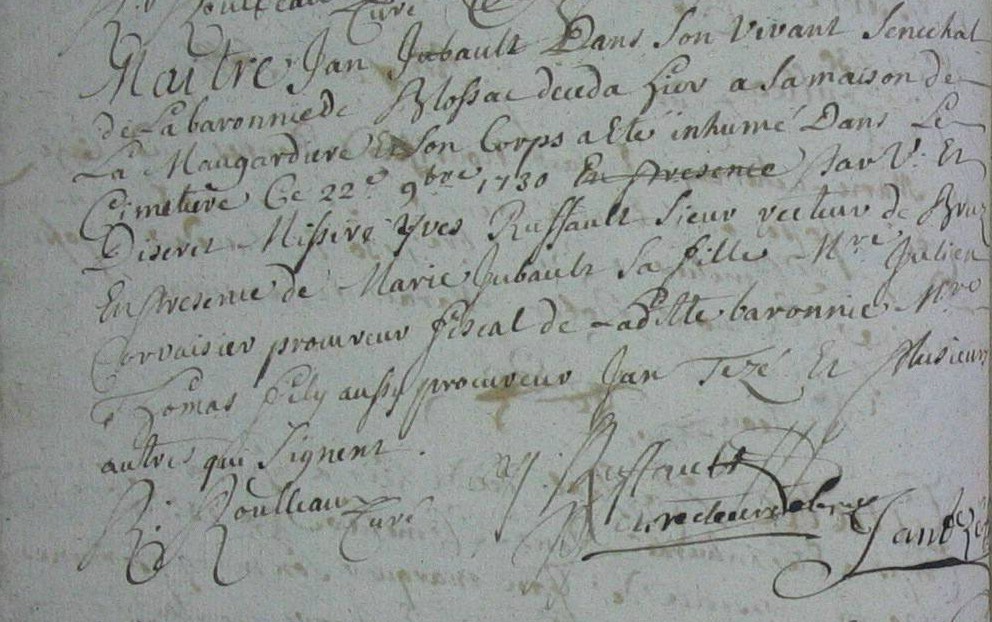 R. Roulleau Curé
Maitre Jan Jubault Dans Son vivant Senechal
de La baronnie de Blossac deceda hier a La maison de
La Maugardiere Et Son Corps a Eté inhumé Dans Le
Cimetiere Ce 22e 9bre 1730 En presence par V. Et
Discret Missire Yves Ruffault Sieur recteur de Bruz
En presence de Marie Jubault Sa fille Mre Julien
Corvaisier procureur fiscal de Laditte baronnie Mre
Thomas Pily aussy procureur Jan Tezé Et plusieurs
autres qui Signent.
R. Roulleau Curé
Y Ruffault
recteur de bruz
Jan Tezé